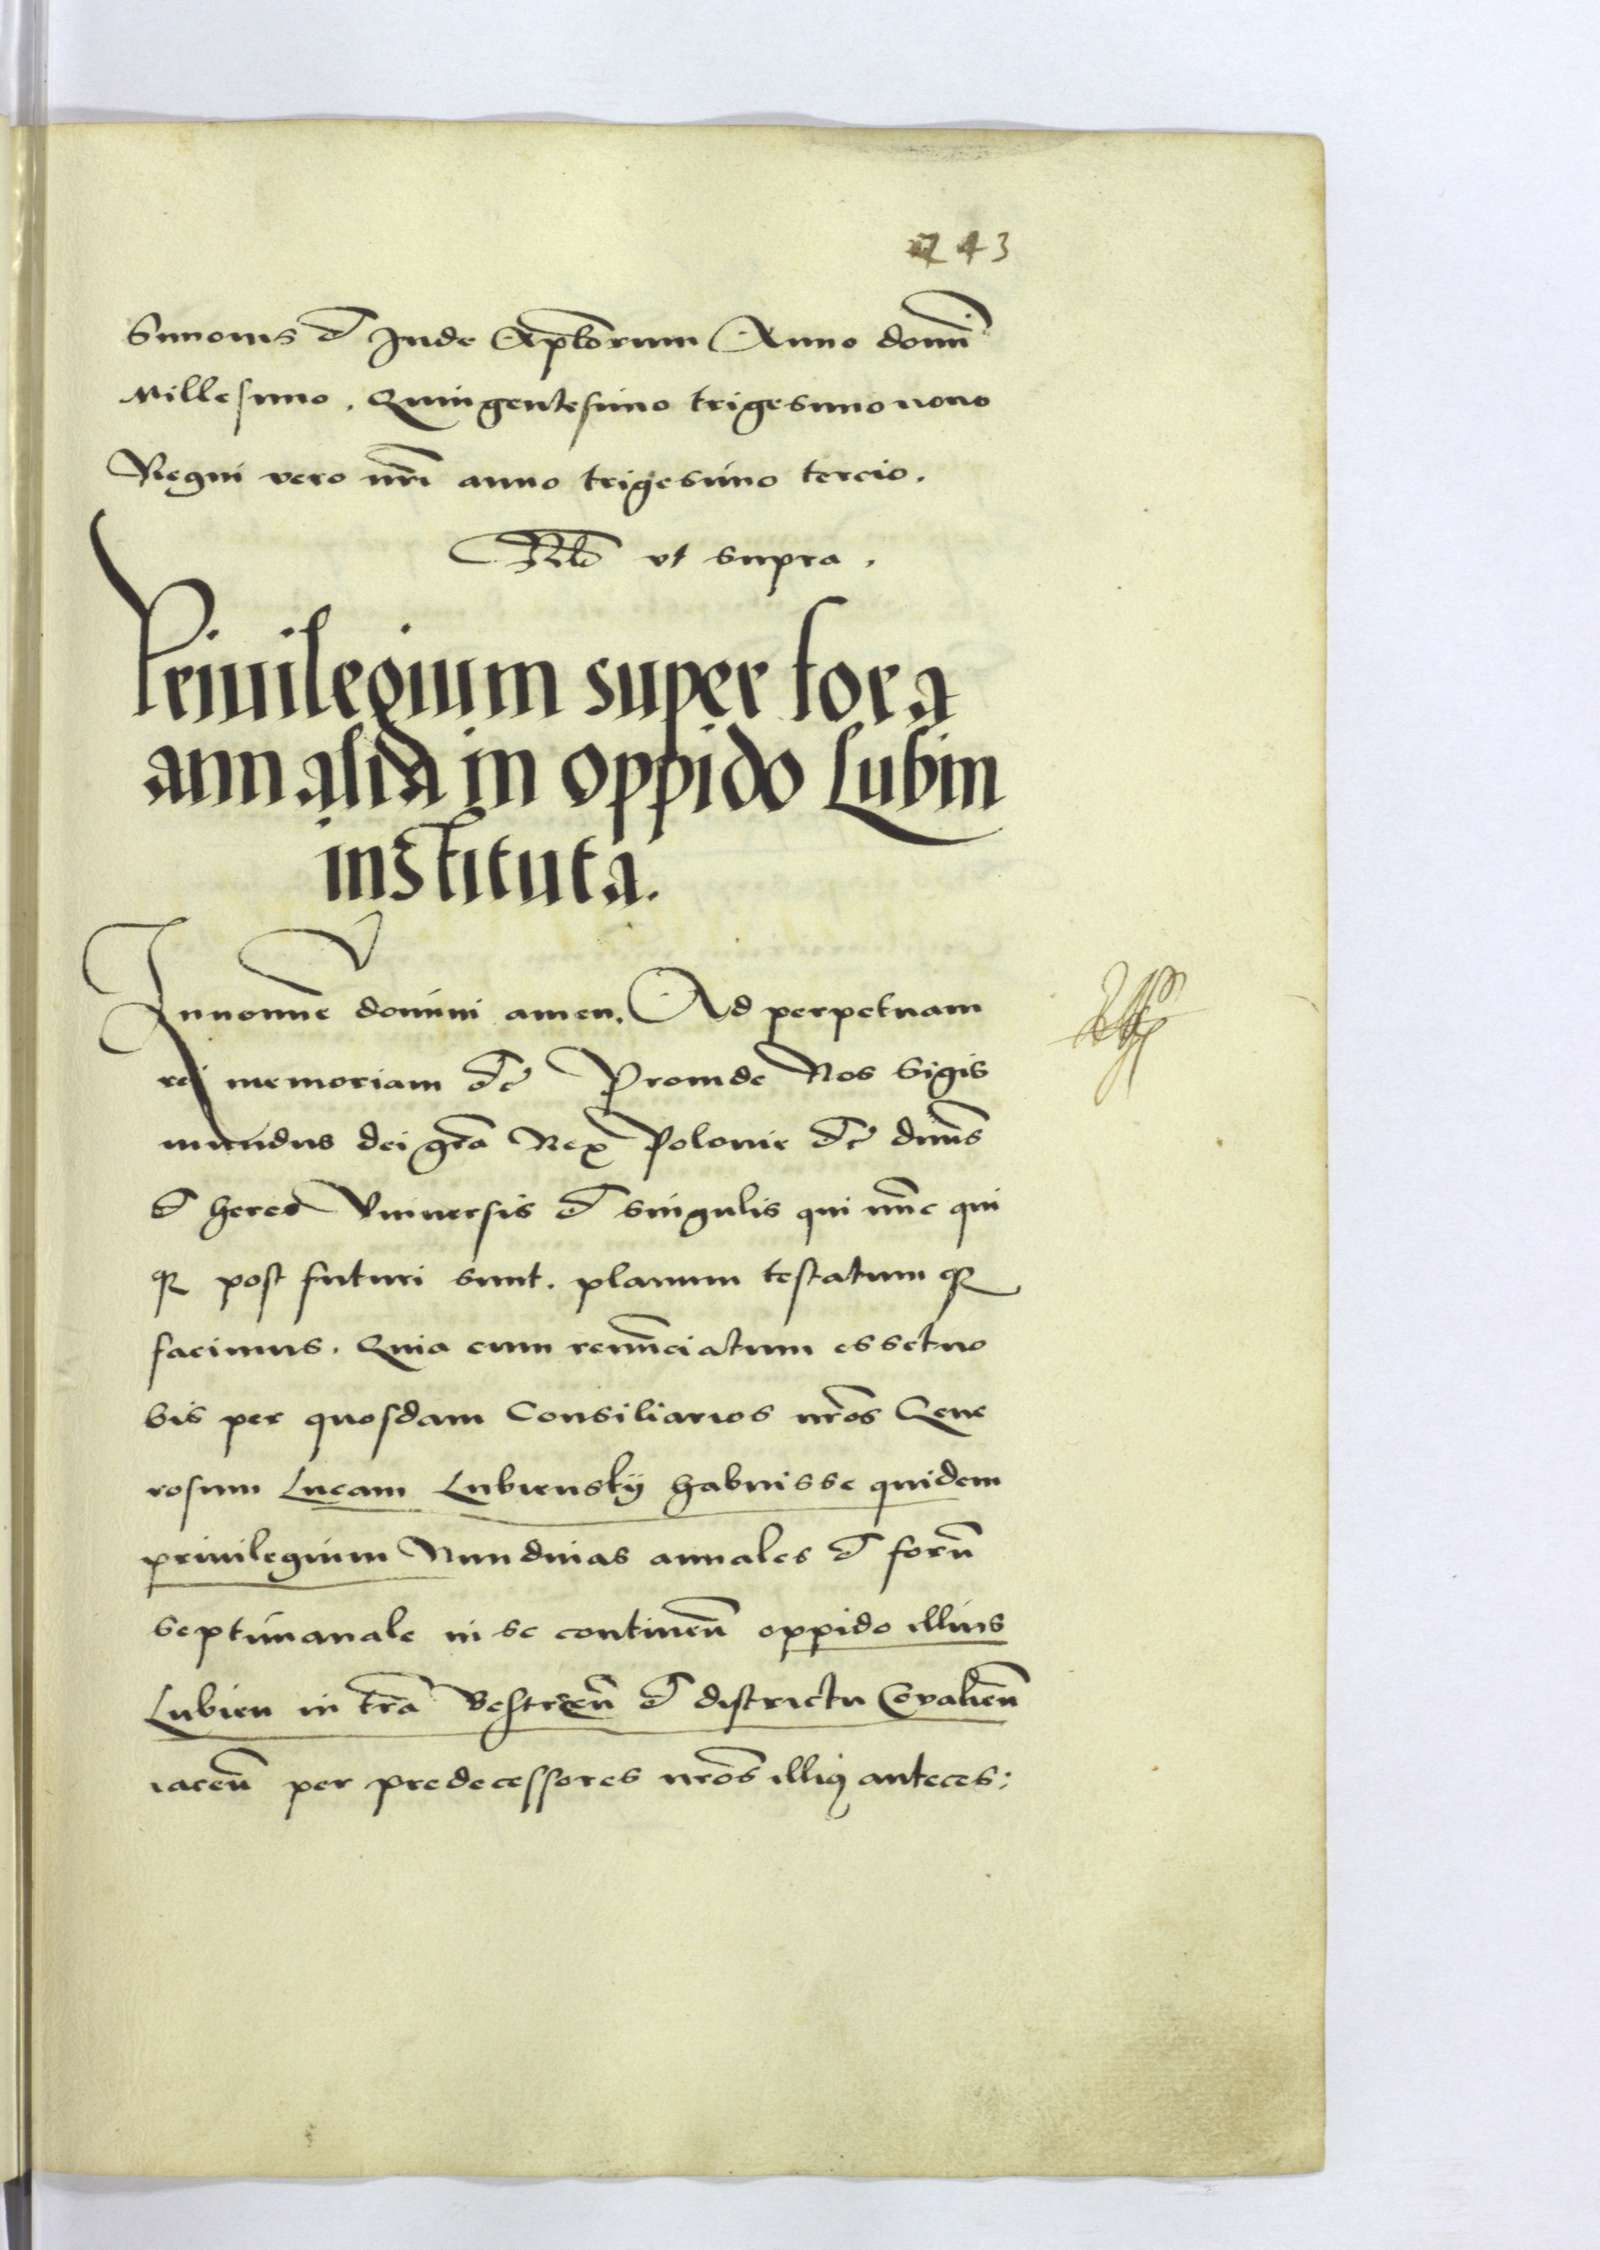 243
Simonis et Jude Aplorum Anno domi
Millesimo. Quingentesimo trigesimo nono
Regni vero nri anno trigesimo tercio.
Rlō vt supra.
Priuilegium super fora
annalia in oppido Lubin
instituta.
In nomine domini amen. Ad perpetuam
rei memoriam etc Proinde Nos Sigis
mundus dei gra Rex Polonie etc dnus
et heres Vniuersis et singulis qui nunc qui
q post futuri sunt. planum testatum q
facimus. Quia cum renunciatum esset no
bis per quosdam Consiliarios nros Gene
rosum Lucam Lubiensky habuisse quidem
priuilegium Nundinas annales et forum
septimanale in se continen oppido illius
Lubien in tra Bestren et districtu Covalien
iacen per predecessores nros illiq anteces: